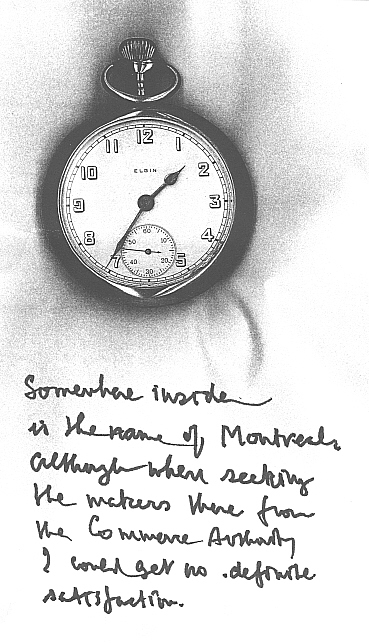 11 12 1
10 2
ELGIN
9 3
8 4
7 5
60
10
40 20
30
Somewhere inside
is the name of Montreal,
although when seeking
the makers there from
the Commerce Authority
I could get no definite
satisfaction.